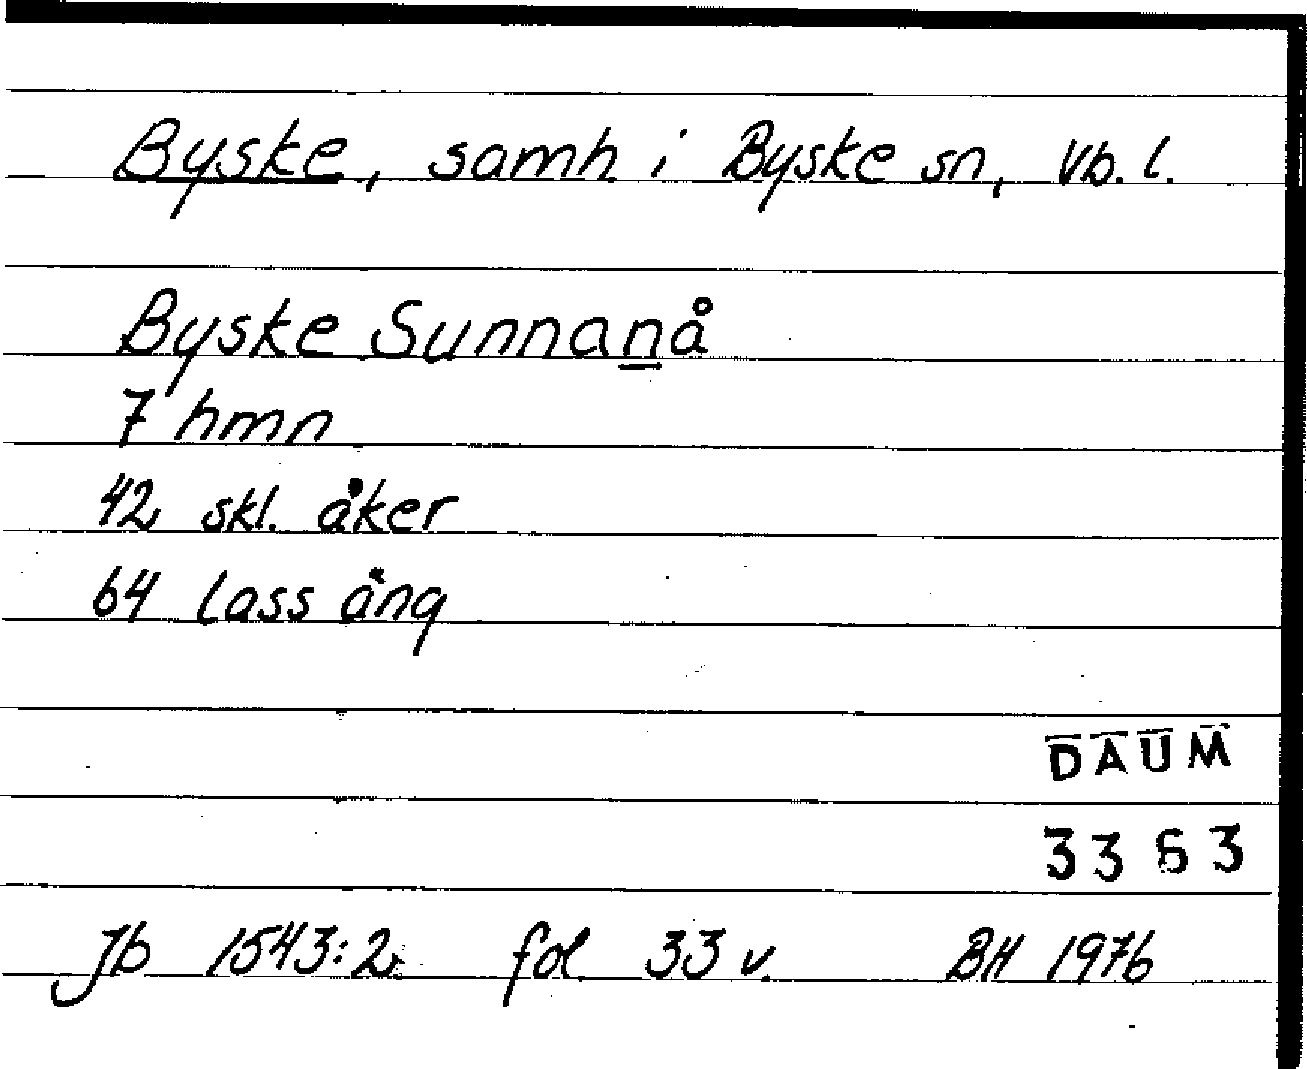 Byske, samh i Byske sn, Vb. l.
Byske Sunnanå
7 hmn
42 skl. åker
64 lass äng
DAUM
3363
Jb 1543:2 fol 33 v. BH 1976